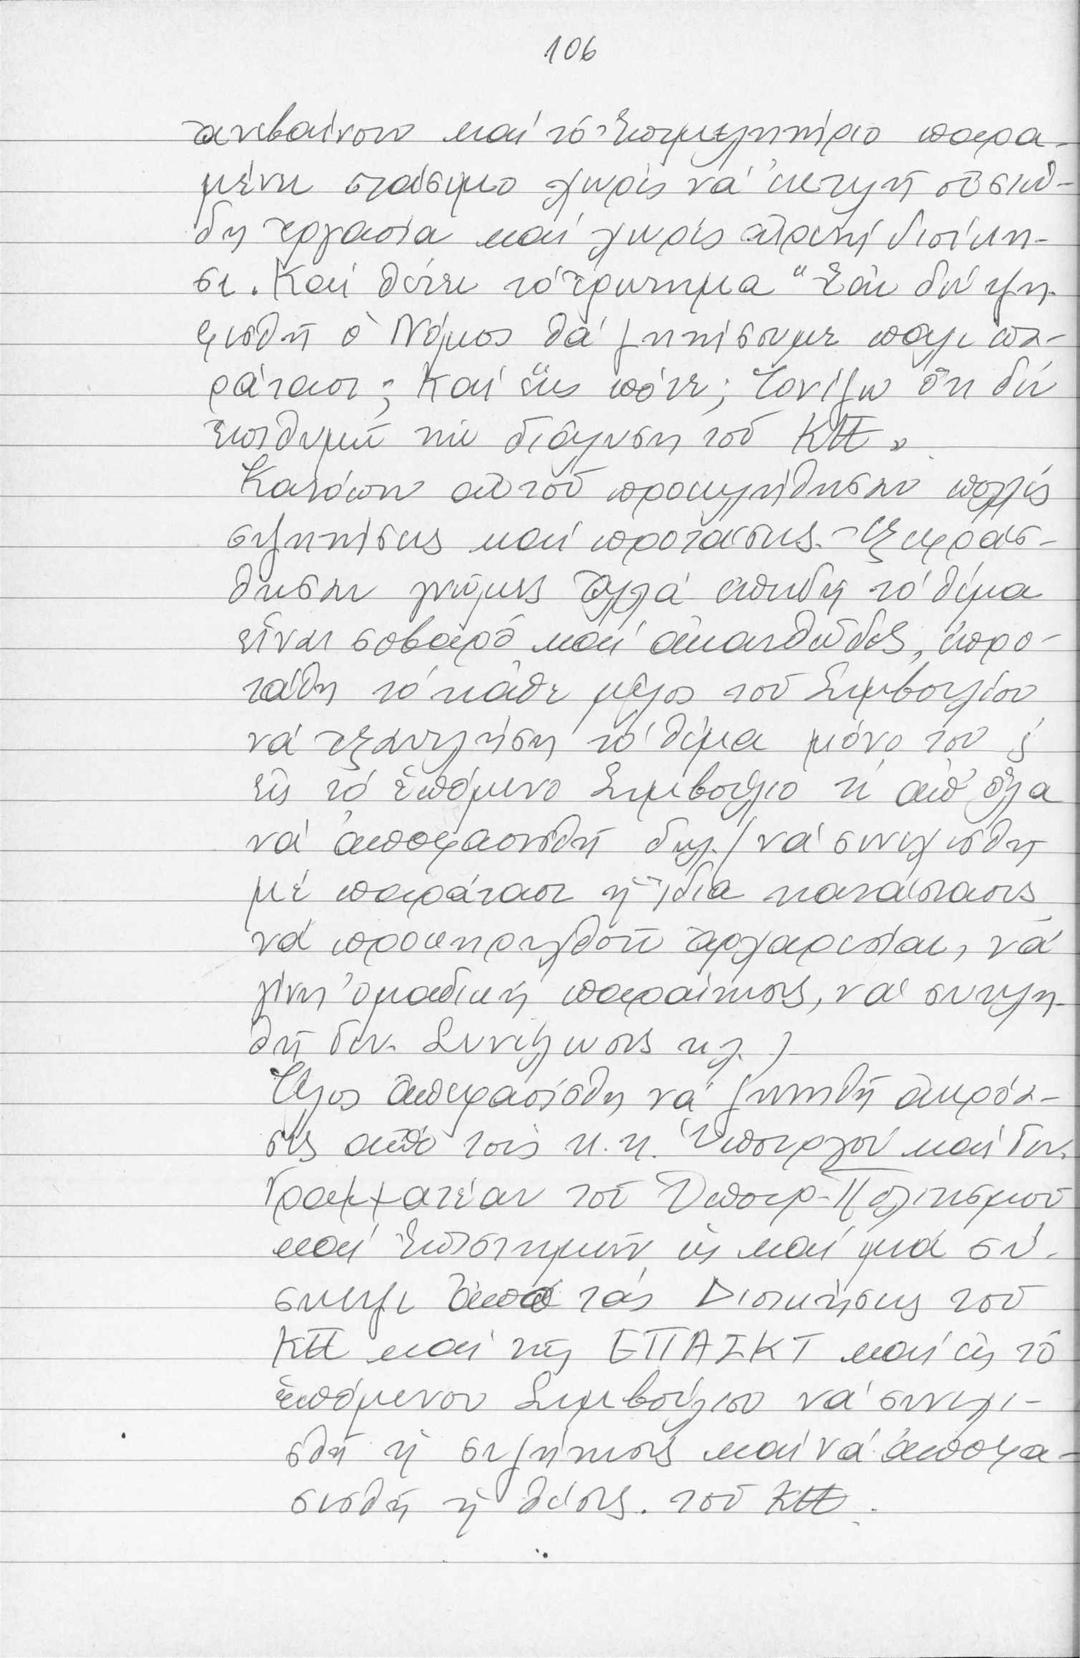 106
ανεβαίνουν καί τό Ἐπιμελητήριο παρα-
μένει στάσιμο χωρίς νά ἐκτελῇ οὐσιώ-
δη ἐργασία καί χωρίς αἱρετή διοίκη-
σι. Καί θέτει τό ἐρώτημα "Ἐάν δέν ψη-
φισθῇ ὁ Νόμος θά ζητήσουμε πάλι πα-
ράτασι; Καί ἕως πότε; Τονίζω ὅτι δέν
ἐπιθυμῶ τήν διάλυση τοῦ ΚΤΕ»
Κατόπιν αὐτοῦ προεκλήθησαν πολλές
συζητήσεις καί προτάσεις. Ἐξεφράσ-
θησαν γνῶμες ἀλλά ἐπειδή τό θέμα
εἶναι σοβαρό καί ἀκανθῶδες, ἐπρο-
τάθη τό κάθε μέλος τοῦ Συμβουλίου
νά ἐξαντλήσῃ τό θέμα μόνο του &
εἰς τό ἑπόμενο Συμβούλιο τί ἀπ' ὅλα
νά ἀποφασισθῇ δηλ. (νά συνεχισθῇ
μέ παράτασι ἡ ἴδια κατάστασις
νά προκηρυχθοῦν ἀρχαιρεσίαι, νά
γίνῃ ὁμαδική παραίτησις, νά συγκλη-
θῇ Γεν. Συνέλευσις κ.λ.)
Τέλος ἀπεφασίσθη νά ζητηθῇ ἀκρόα-
σις ἀπό τούς κ.κ. Ὑπουργόν καί Γεν.
Γραμματέαν τοῦ Ὑπουρ. Πολιτισμοῦ
καί Ἐπιστημῶν ὡς καί μιά σύ-
σκεψι ἀπό τάς Διοικήσεις τοῦ
ΚΤΕ καί τῆς ΕΠΑΣΚΤ καί εἰς τό
ἑπόμενον Συμβούλιο νά συνεχι-
σθῇ ἡ συζήτησις καί νά ἀποφα-
σισθῇ ἡ θέσις. τοῦ ΚΤΕ.